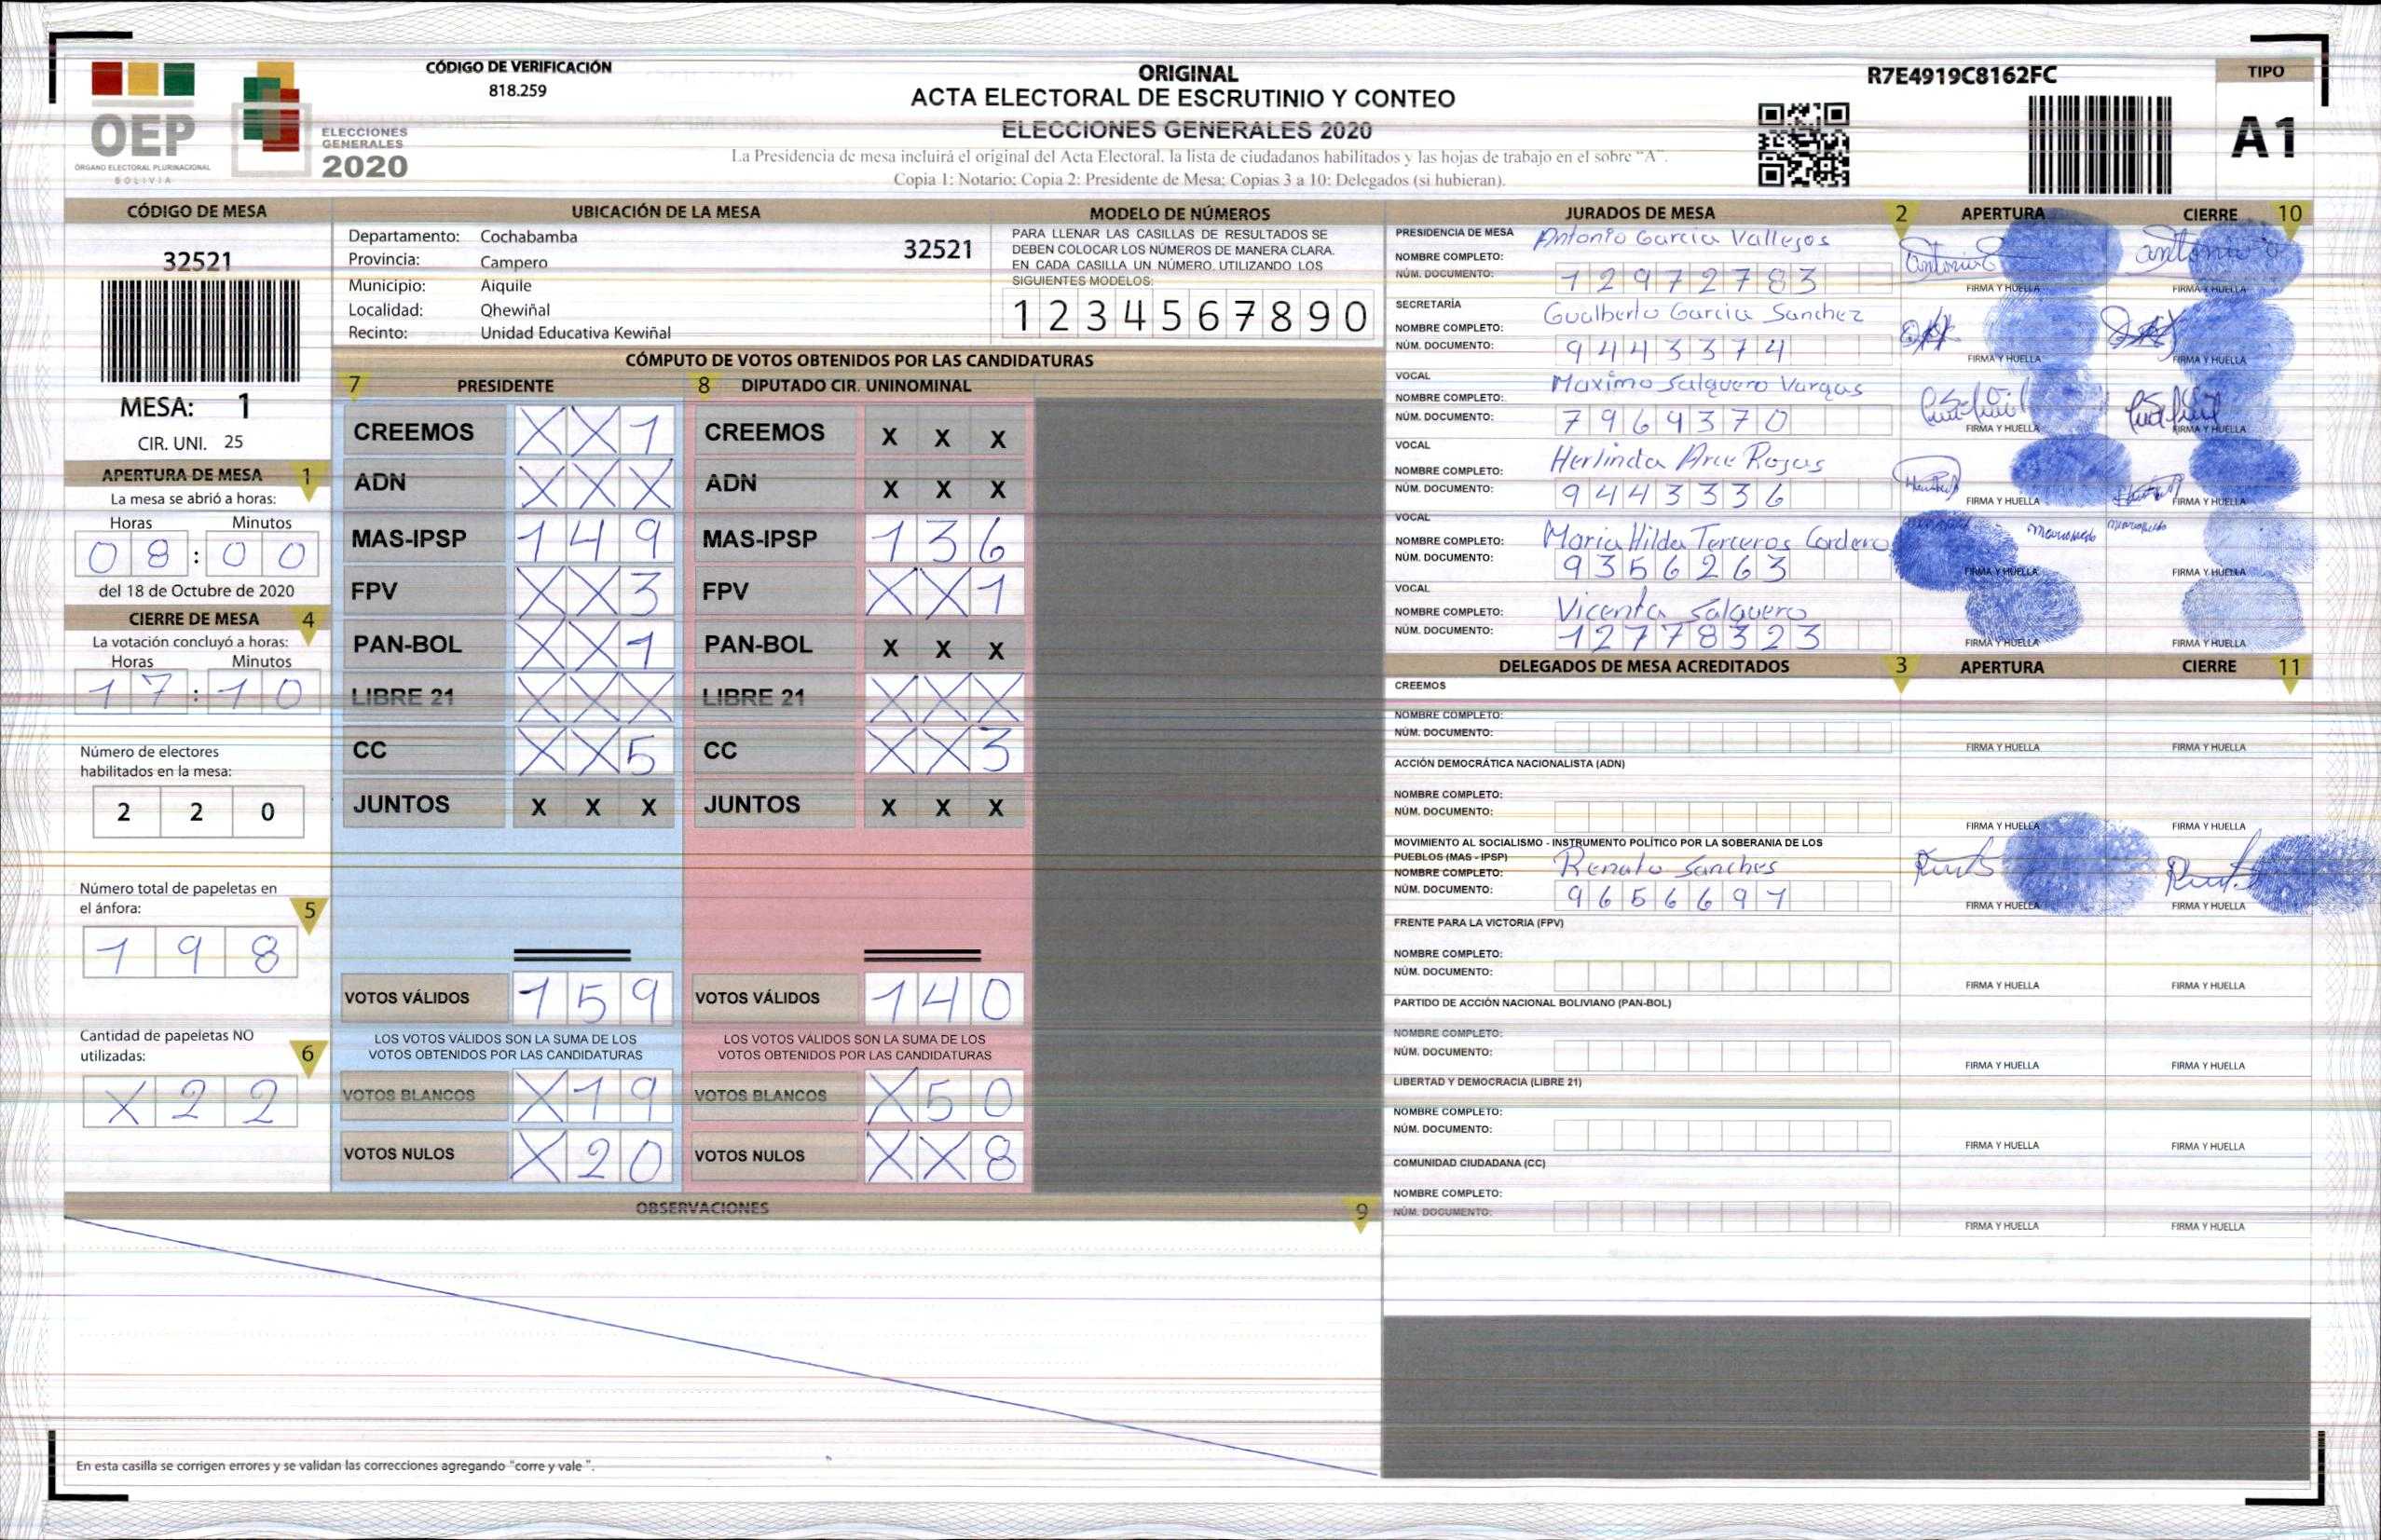 CÓDIGO DE VERIFICACIÓN
818.259
OEP
ÓRGANO ELECTORAL PLURINACIONAL
BOLIVIA
ELECCIONES
GENERALES
2020
ORIGINAL
ACTA ELECTORAL DE ESCRUTINIO Y CONTEO
ELECCIONES GENERALES 2020
La Presidencia de mesa incluirá el original del Acta Electoral, la lista de ciudadanos habilitados y las hojas de trabajo en el sobre "A".
Copia 1: Notario; Copia 2: Presidente de Mesa; Copias 3 a 10: Delegados (si hubieran).
R7E4919C8162FC
TIPO
A1
CÓDIGO DE MESA
32521
MESA: 1
CIR. UNI. 25
APERTURA DE MESA 1
La mesa se abrió a horas:
Horas Minutos
08:00
del 18 de Octubre de 2020
CIERRE DE MESA 4
La votación concluyó a horas:
Horas Minutos
17:10
Número de electores
habilitados en la mesa:
2 2 0
Número total de papeletas en
el ánfora: 5
1 9 8
Cantidad de papeletas NO
utilizadas: 6
X 2 2
UBICACIÓN DE LA MESA
Departamento: Cochabamba 32521
Provincia: Campero
Municipio: Aiquile
Localidad: Qhewiñal
Recinto: Unidad Educativa Kewiñal
MODELO DE NÚMEROS
PARA LLENAR LAS CASILLAS DE RESULTADOS SE
DEBEN COLOCAR LOS NÚMEROS DE MANERA CLARA.
EN CADA CASILLA UN NÚMERO, UTILIZANDO LOS
SIGUIENTES MODELOS:
1 2 3 4 5 6 7 8 9 0
CÓMPUTO DE VOTOS OBTENIDOS POR LAS CANDIDATURAS
7 PRESIDENTE
CREEMOS X X 1
ADN X X X
MAS-IPSP 1 4 9
FPV X X 3
PAN-BOL X X 1
LIBRE 21 X X X
CC X X 5
JUNTOS X X X
VOTOS VÁLIDOS 1 5 9
LOS VOTOS VÁLIDOS SON LA SUMA DE LOS
VOTOS OBTENIDOS POR LAS CANDIDATURAS
VOTOS BLANCOS X 1 9
VOTOS NULOS X 2 0
8 DIPUTADO CIR. UNINOMINAL
CREEMOS X X X
ADN X X X
MAS-IPSP 1 3 6
FPV X X 1
PAN-BOL X X X
LIBRE 21 X X X
CC X X 3
JUNTOS X X X
VOTOS VÁLIDOS 1 4 0
LOS VOTOS VÁLIDOS SON LA SUMA DE LOS
VOTOS OBTENIDOS POR LAS CANDIDATURAS
VOTOS BLANCOS X 5 0
VOTOS NULOS X X 8
OBSERVACIONES 9
En esta casilla se corrigen errores y se validan las correcciones agregando "corre y vale ".
JURADOS DE MESA 2 APERTURA CIERRE 10
PRESIDENCIA DE MESA
NOMBRE COMPLETO: Antonio Garcia Vallejos
NÚM. DOCUMENTO: 12972783
FIRMA Y HUELLA FIRMA Y HUELLA
SECRETARÍA
NOMBRE COMPLETO: Gualberto Garcia Sanchez
NÚM. DOCUMENTO: 9443374
FIRMA Y HUELLA FIRMA Y HUELLA
VOCAL
NOMBRE COMPLETO: Maximo Salguero Vargas
NÚM. DOCUMENTO: 7964370
FIRMA Y HUELLA FIRMA Y HUELLA
VOCAL
NOMBRE COMPLETO: Herlinda Arce Rojas
NÚM. DOCUMENTO: 9443336
FIRMA Y HUELLA FIRMA Y HUELLA
VOCAL
NOMBRE COMPLETO: Maria Hilda Terceros Cordero
NÚM. DOCUMENTO: 9356263
FIRMA Y HUELLA FIRMA Y HUELLA
VOCAL
NOMBRE COMPLETO: Vicenta Salguero
NÚM. DOCUMENTO: 12778323
FIRMA Y HUELLA FIRMA Y HUELLA
DELEGADOS DE MESA ACREDITADOS 3 APERTURA CIERRE 11
CREEMOS
NOMBRE COMPLETO:
NÚM. DOCUMENTO:
FIRMA Y HUELLA FIRMA Y HUELLA
ACCIÓN DEMOCRÁTICA NACIONALISTA (ADN)
NOMBRE COMPLETO:
NÚM. DOCUMENTO:
FIRMA Y HUELLA FIRMA Y HUELLA
MOVIMIENTO AL SOCIALISMO - INSTRUMENTO POLÍTICO POR LA SOBERANIA DE LOS
PUEBLOS (MAS - IPSP)
NOMBRE COMPLETO: Renato Sanches
NÚM. DOCUMENTO: 9656697
FIRMA Y HUELLA FIRMA Y HUELLA
FRENTE PARA LA VICTORIA (FPV)
NOMBRE COMPLETO:
NÚM. DOCUMENTO:
FIRMA Y HUELLA FIRMA Y HUELLA
PARTIDO DE ACCIÓN NACIONAL BOLIVIANO (PAN-BOL)
NOMBRE COMPLETO:
NÚM. DOCUMENTO:
FIRMA Y HUELLA FIRMA Y HUELLA
LIBERTAD Y DEMOCRACIA (LIBRE 21)
NOMBRE COMPLETO:
NÚM. DOCUMENTO:
FIRMA Y HUELLA FIRMA Y HUELLA
COMUNIDAD CIUDADANA (CC)
NOMBRE COMPLETO:
NÚM. DOCUMENTO:
FIRMA Y HUELLA FIRMA Y HUELLA